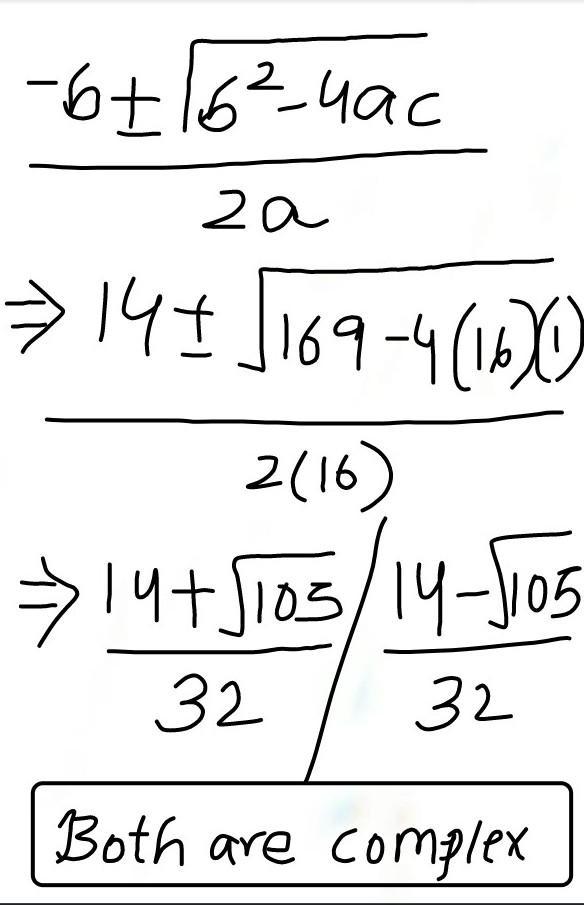 -b±√b²-4ac
2a
⇒ 14± √169-4(16)(1)
2(16)
⇒ 14+√105 / 14-√105
32 32
Both are complex